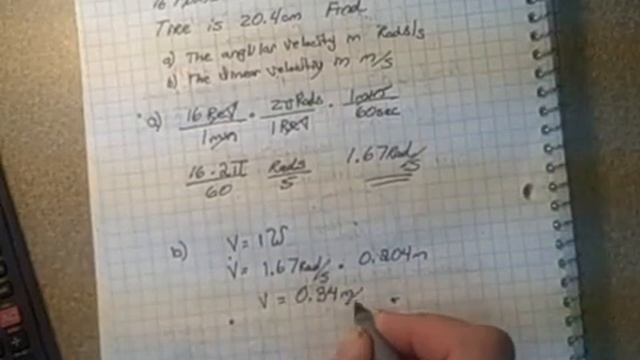 Tire is 20.4cm Find
a) The angular velocity in Rads/s
b) The linear velocity in m/s
a) 16 Rev/1min · 2π Rads/1 Rev · 1min/60sec
16 · 2π/60 Rads/s 1.67 Rad/s
b) V = rω
V = 1.67 Rad/s · 0.204m
V = 0.34m/